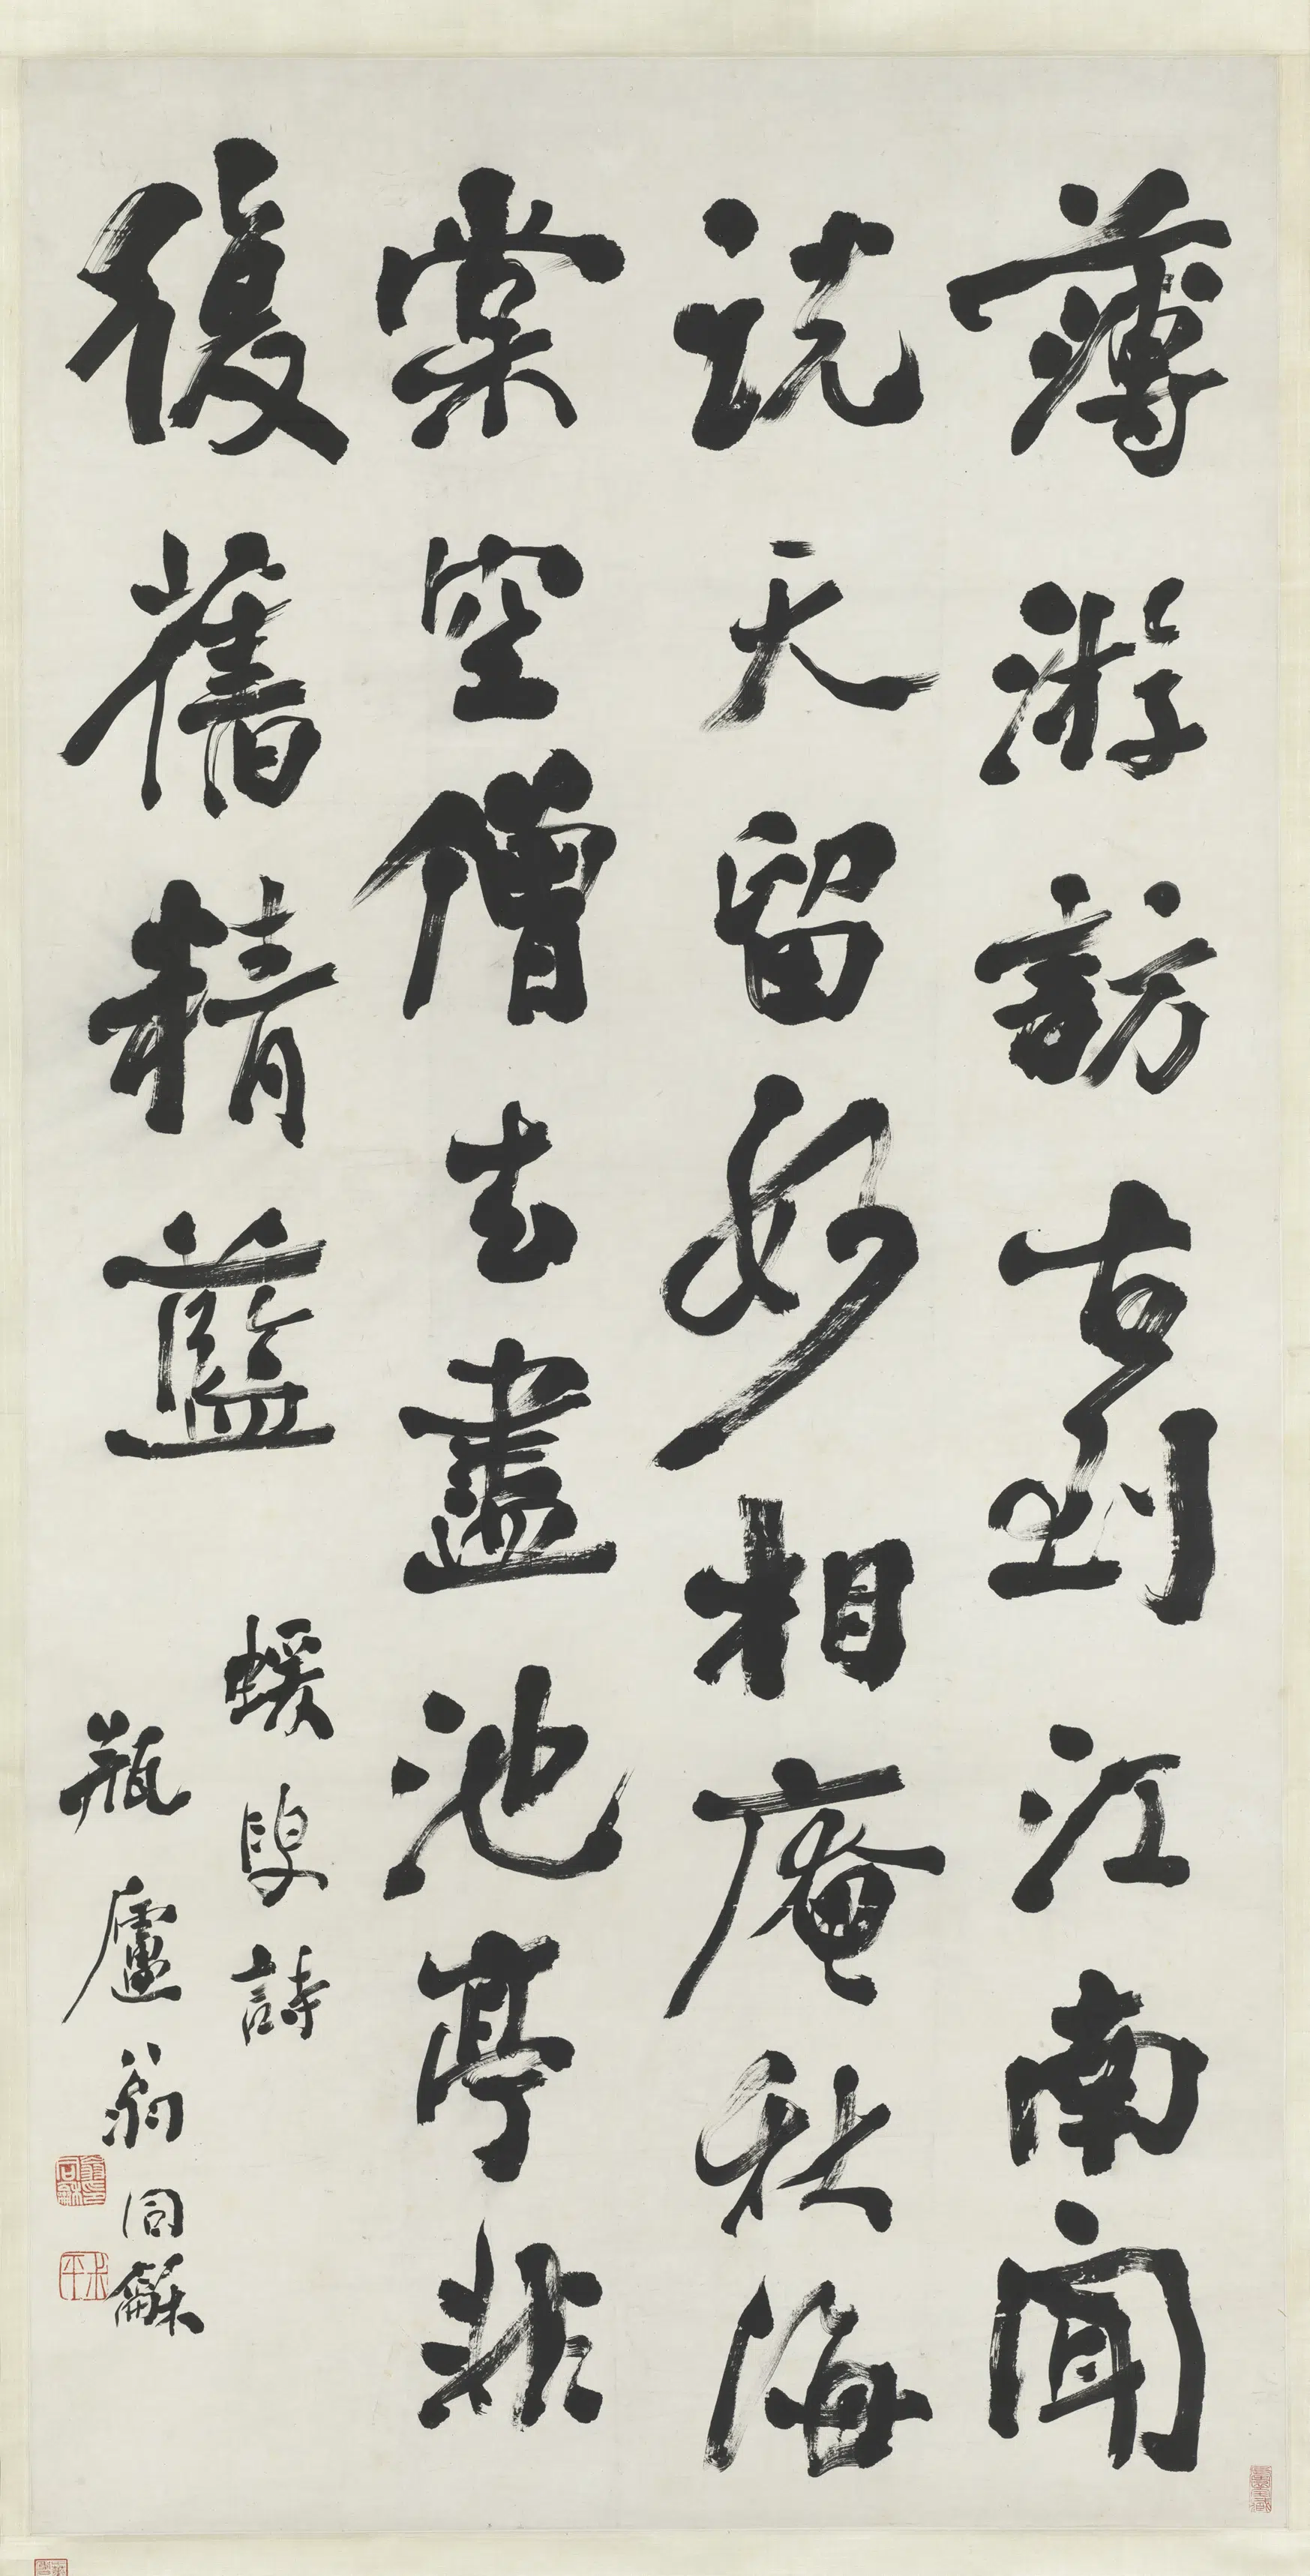 薄游訪古到江南聞
說天留妙相庵秋海
棠空僧去盡池亭非
復舊精藍
蝯叟詩
瓶廬翁同龢